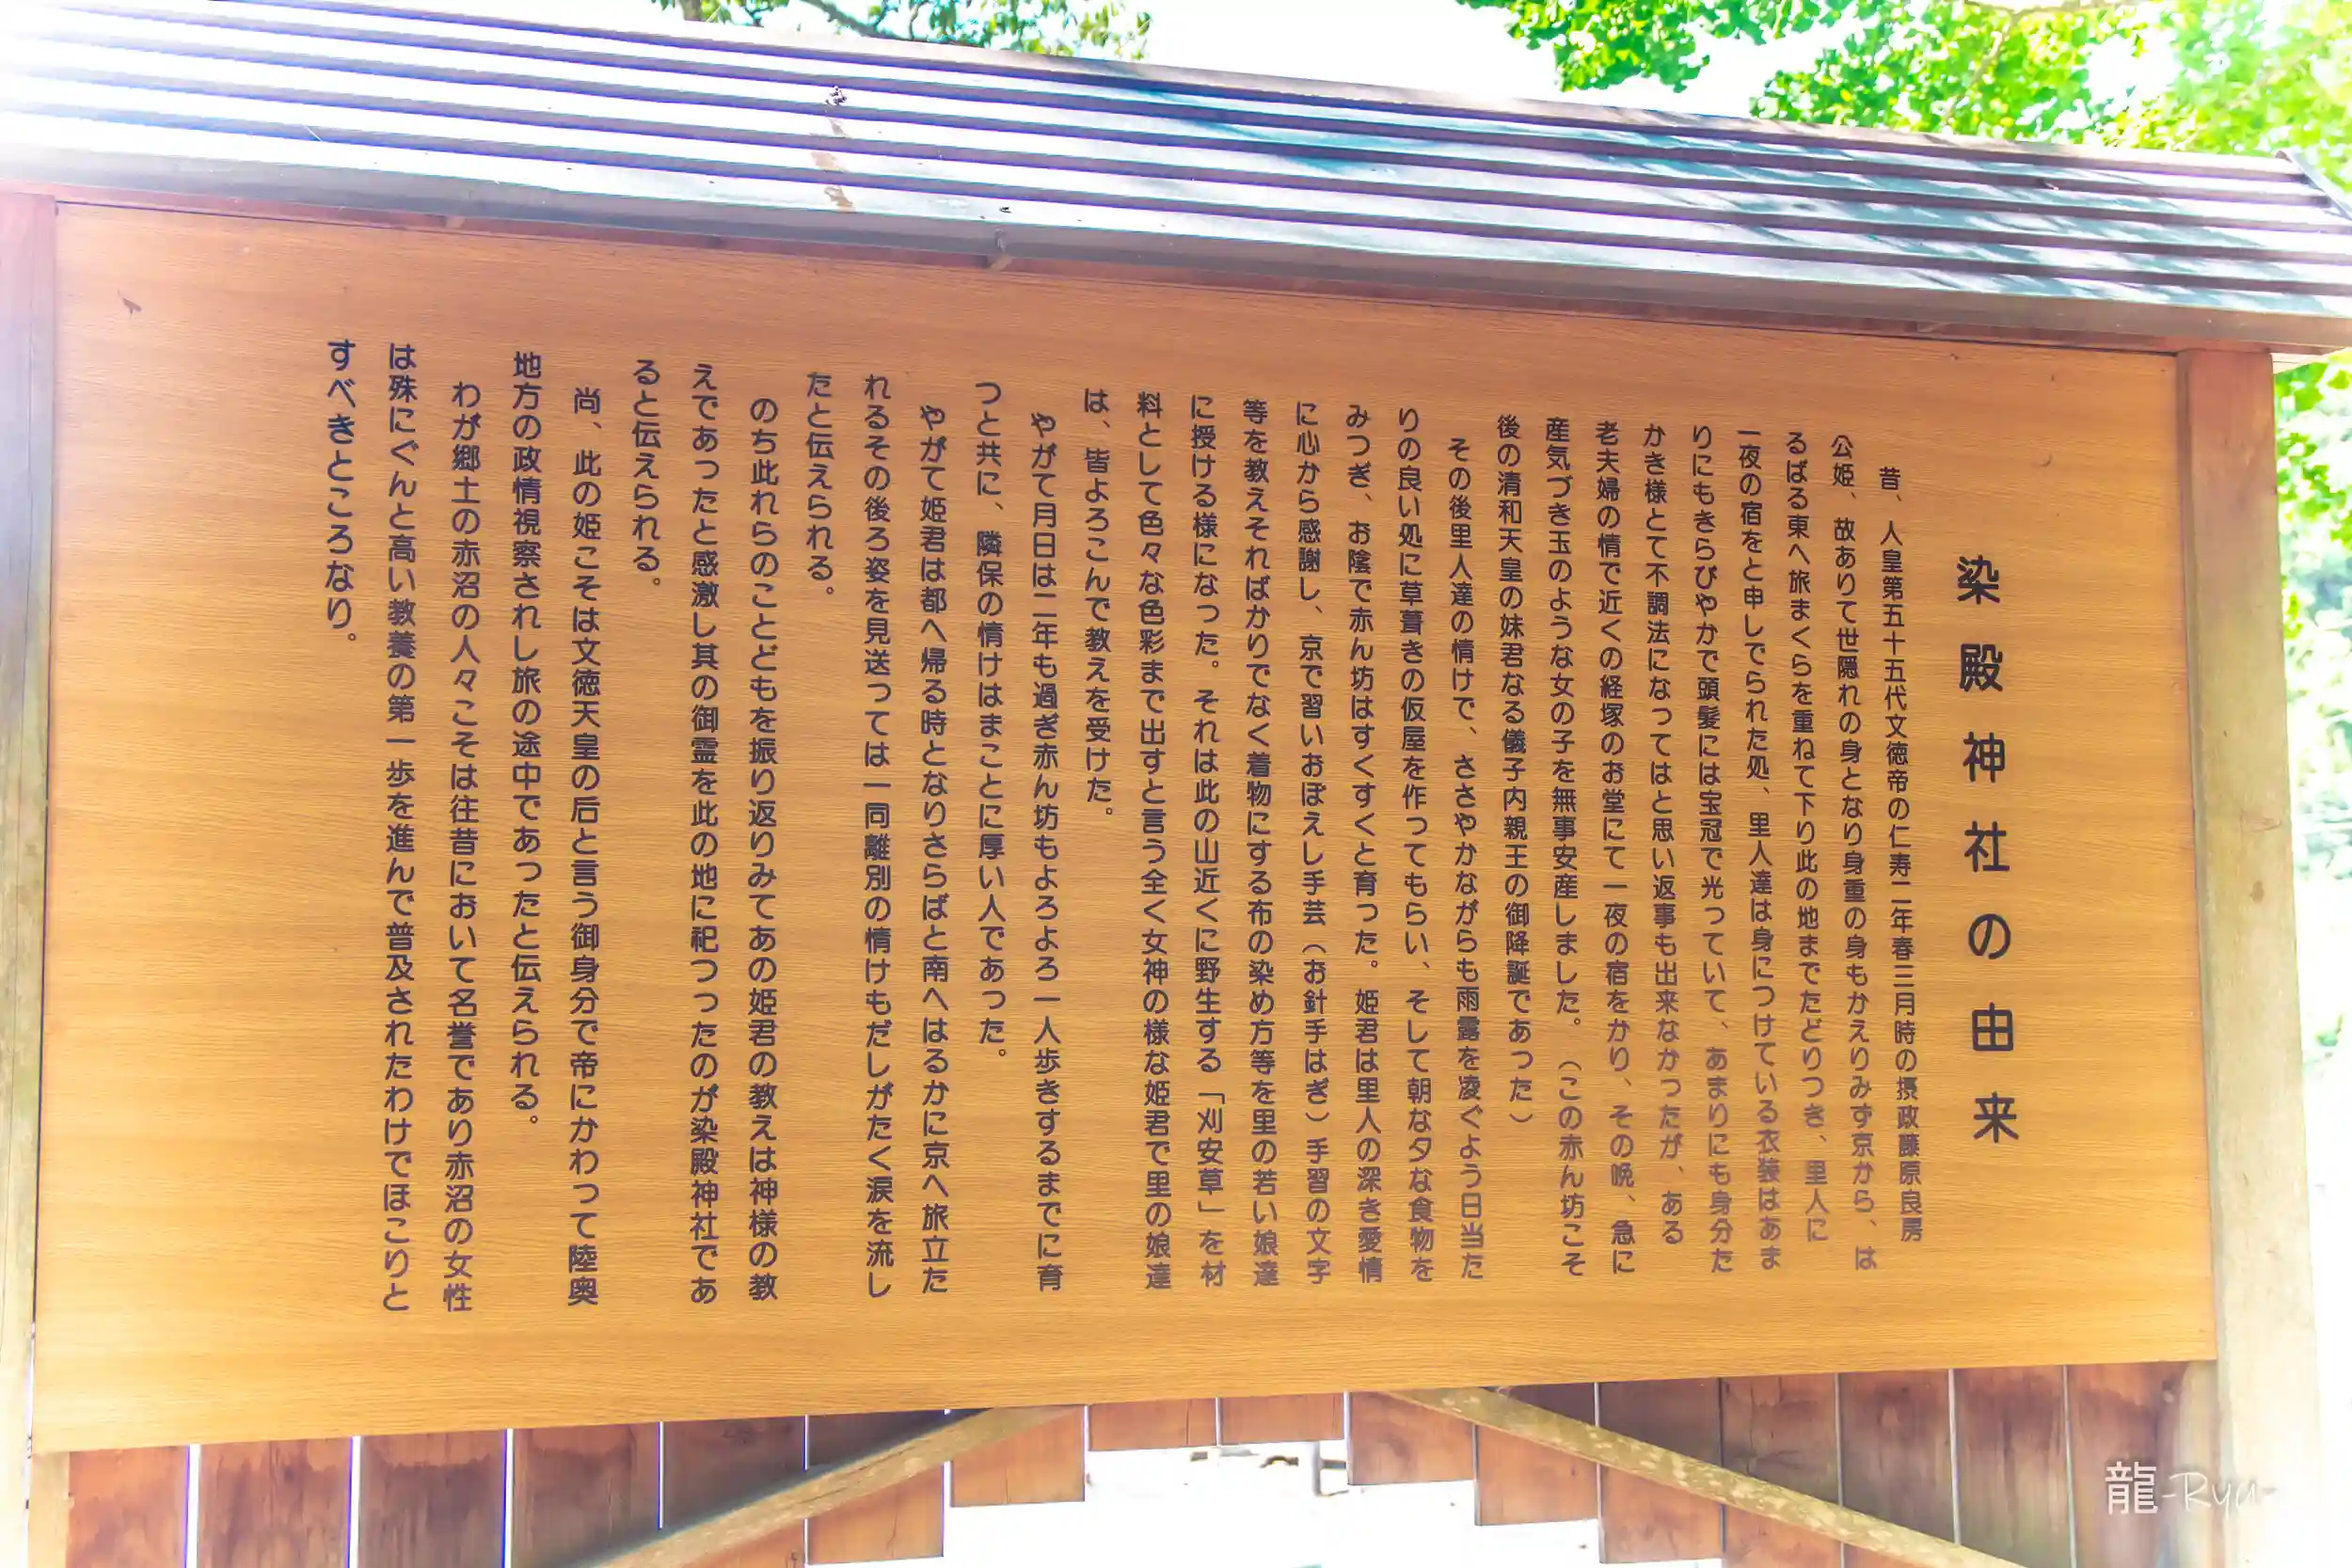 染殿神社の由来
昔、人皇第五十五代文徳帝の仁寿二年春三月時の摂政藤原良房
公姫、故ありて世隠れの身となり身重の身もかえりみず京から、は
るばる東へ旅まくらを重ねて下り此の地までたどりつき、里人に
一夜の宿をと申しでられた処、里人達は身につけている衣装はあま
りにもきらびやかで頭髪には宝冠で光っていて、あまりにも身分た
かき様とて不調法になってはと思い返事も出来なかったが、ある
老夫婦の情で近くの経塚のお堂にて一夜の宿をかり、その晩、急に
産気づき玉のような女の子を無事安産しました。（この赤ん坊こそ
後の清和天皇の妹君なる儀子内親王の御降誕であった）
その後里人達の情けで、ささやかながらも雨露を凌ぐよう日当た
りの良い処に草葺きの仮屋を作ってもらい、そして朝な夕な食物を
みつぎ、お陰で赤ん坊はすくすくと育った。姫君は里人の深き愛情
に心から感謝し、京で習いおぼえし手芸（お針手はぎ）手習の文字
等を教えそればかりでなく着物にする布の染め方等を里の若い娘達
に授ける様になった。それは此の山近くに野生する「刈安草」を材
料として色々な色彩まで出すと言う全く女神の様な姫君で里の娘達
は、皆よろこんで教えを受けた。
やがて月日は二年も過ぎ赤ん坊もよろよろ一人歩きするまでに育
つと共に、隣保の情けはまことに厚い人であった。
やがて姫君は都へ帰る時となりさらばと南へはるかに京へ旅立た
れるその後ろ姿を見送っては一同離別の情けもだしがたく涙を流し
たと伝えられる。
のち此れらのことどもを振り返りみてあの姫君の教えは神様の教
えであったと感激し其の御霊を此の地に祀つったのが染殿神社であ
ると伝えられる。
尚、此の姫こそは文徳天皇の后と言う御身分で帝にかわって陸奥
地方の政情視察されし旅の途中であったと伝えられる。
わが郷土の赤沼の人々こそは往昔において名誉であり赤沼の女性
は殊にぐんと高い教養の第一歩を進んで普及されたわけでほこりと
すべきところなり。
龍-Ryu-